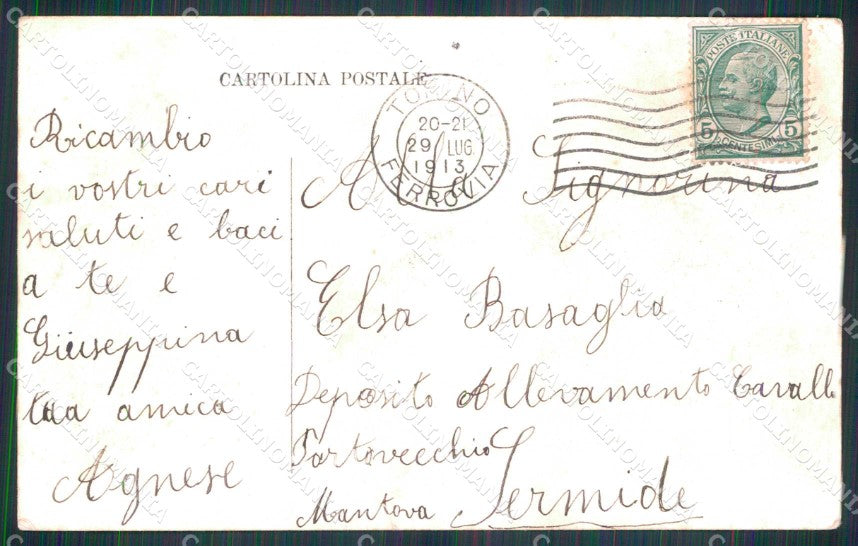 CARTOLINA POSTALE
TORINO
20-21
29 LUG.
1913
FERROVIA
POSTE ITALIANE
5 CENTESIMI 5
Ricambio
i vostri cari
saluti e baci
a te e
Giuseppina
tua amica
Agnese
A la Signorina
Elsa Basaglia
Deposito Allevamento Cavalli
Portovecchio
Mantova Sermide
CARTOLINOMANIA